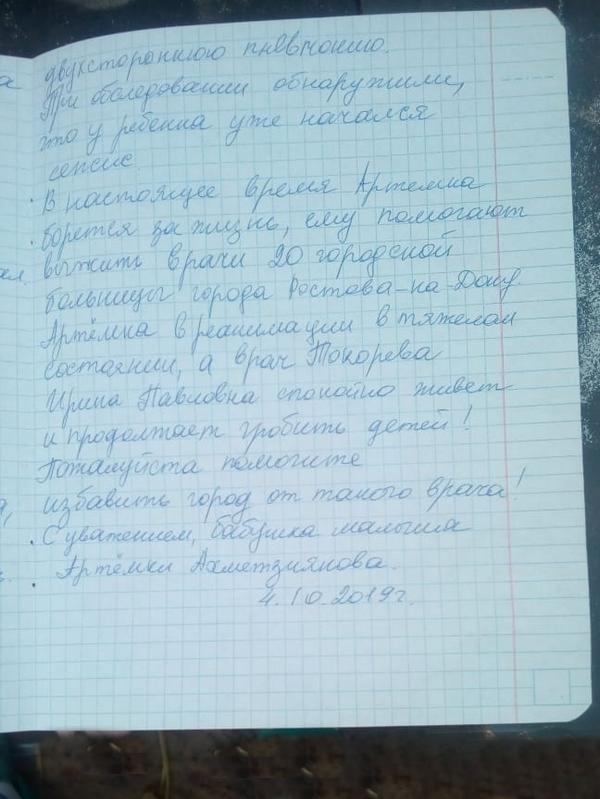 двухстороннюю пневмонию.
При обследовании обнаружили,
что у ребенка уже начался
сепсис.
В настоящее время Артемка
борется за жизнь, ему помогают
выжить врачи 20 городской
больницы города Ростова-на-Дону.
Артёмка в реанимации в тяжелом
состоянии, а врач Токорева
Ирина Павловна спокойно живет
и продолжает гробить детей!
Пожалуйста помогите
избавить город от такого врача!
С уважением, бабушка малыша
Артёмки Ахметзиянова.
4.10.2019г.